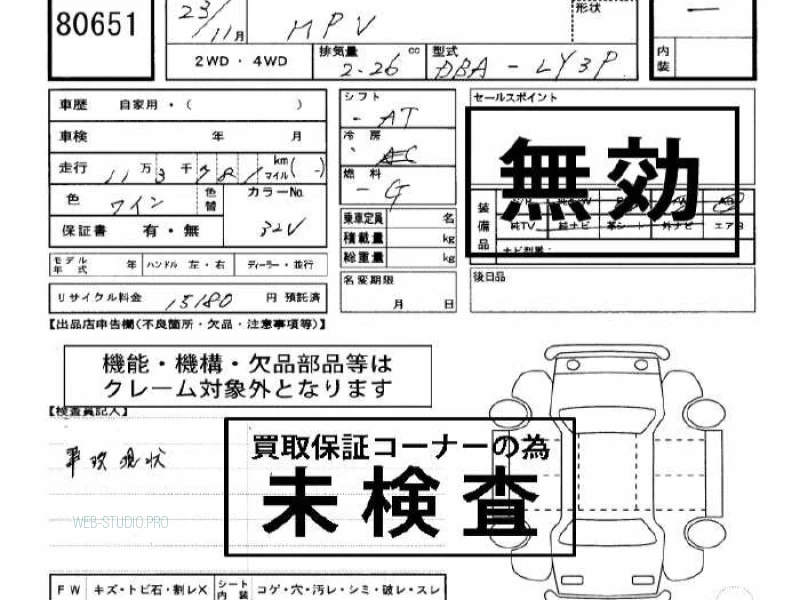 80651
23/11月 MPV 形状 —
2WD・4WD 排気量 cc 2.26 型式 DBA-LY3P 内装
車歴 自家用・( )
シフト - AT
セールスポイント
車検 年 月
冷房 AC
無効
走行 11万3千781 km マイル( -)
燃料 - G
色 ワイン 色替 カラーNo. 32V
装備品
純TV 純ナビ 革シート 外ナビ エアB
保証書 有・無
乗車定員 名
積載量 kg
総重量 kg
ナビ型番:
モデル年式 年 ハンドル 左・右 ディーラー・並行
名変期限 月 日
後日品
リサイクル料金 15180 円 預託済
【出品店申告欄(不良箇所・欠品・注意事項等)】
機能・機構・欠品部品等は
クレーム対象外となります
【検査員記入】
買取保証コーナーの為
未検査
現状
WEB-STUDIO.PRO
FW キズ・トビ石・割レX シート内装 コゲ・穴・汚レ・シミ・破レ・スレ